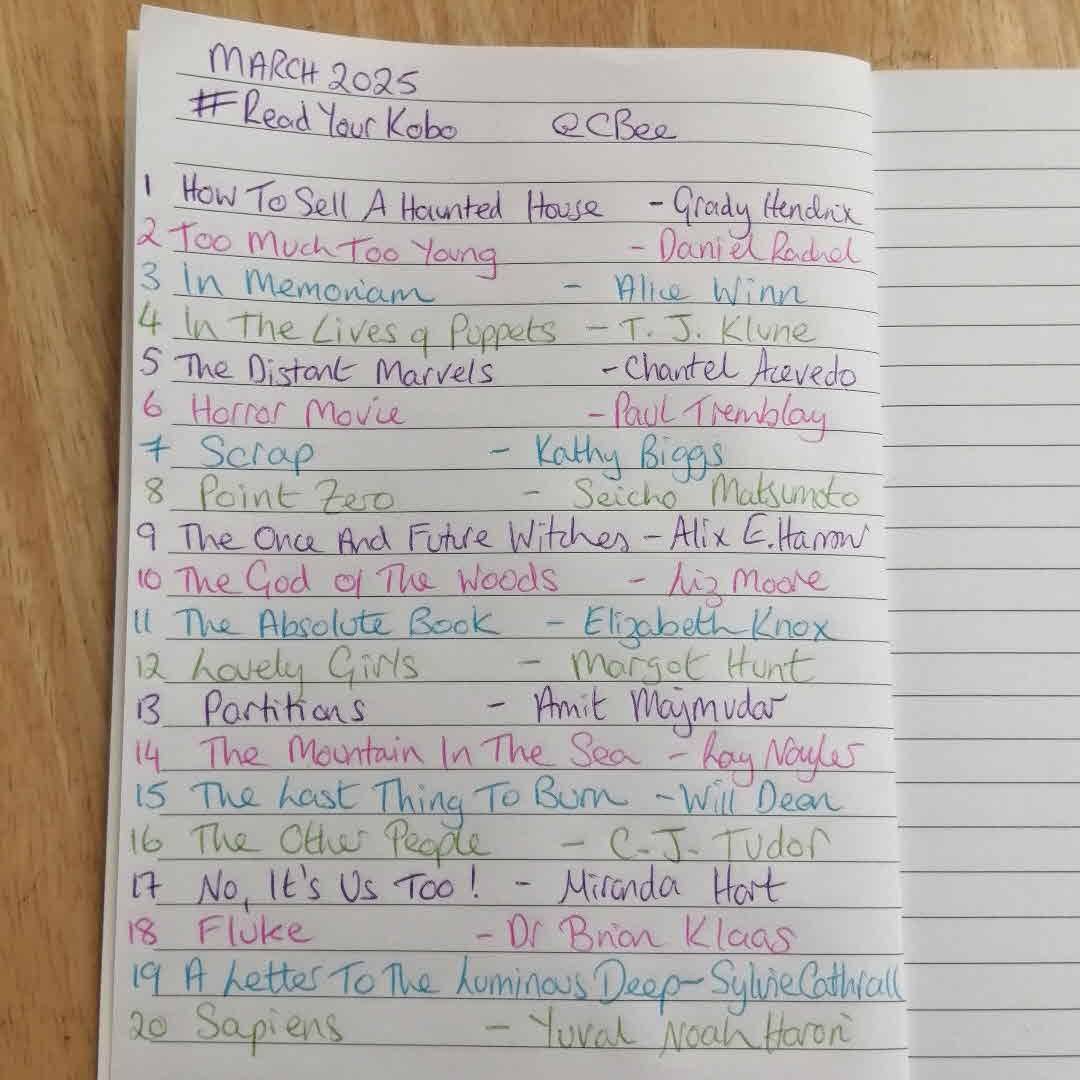 MARCH 2025
#Read Your Kobo @CBee
1 How To Sell A Haunted House - Grady Hendrix
2 Too Much Too Young - Daniel Rachel
3 In Memoriam - Alice Winn
4 In The Lives of Puppets - T. J. Klune
5 The Distant Marvels - Chantel Acevedo
6 Horror Movie - Paul Tremblay
7 Scrap - Kathy Biggs
8 Point Zero - Seicho Matsumoto
9 The Once And Future Witches - Alix E. Harrow
10 The God of The Woods - Liz Moore
11 The Absolute Book - Elizabeth Knox
12 Lovely Girls - Margot Hunt
13 Partitions - Amit Majmudar
14 The Mountain In The Sea - Ray Nayler
15 The Last Thing To Burn - Will Dean
16 The Other People - C. J. Tudor
17 No, It's Us Too! - Miranda Hart
18 Fluke - Dr Brian Klaas
19 A Letter To The Luminous Deep - Sylvie Cathrall
20 Sapiens - Yuval Noah Harari